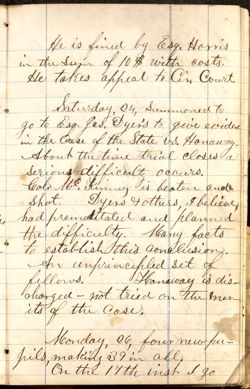 He is fined by Esq. Harris
in the sum of 10$ with costs.
He takes appeal to Cir Court.
Saturday, 24, Summoned to
go to Esq. Jas. Dyer's to give eviden
in the Case of the State vs. Hanaway.
About the time trial closes a
serious difficulty occurs.
Colo Mc. Kinney is beaten and
shot. Dyers & others, I believe,
had premeditated and planned
the difficulty. Many facts
to establish this conclusion.
An unprincipled set of
fellows. Hanaway is dis-
charged — not tried on the mer
its of the case.
Monday, 26, four new pu-
pils, making 39 in all.
On the 17th inst I go